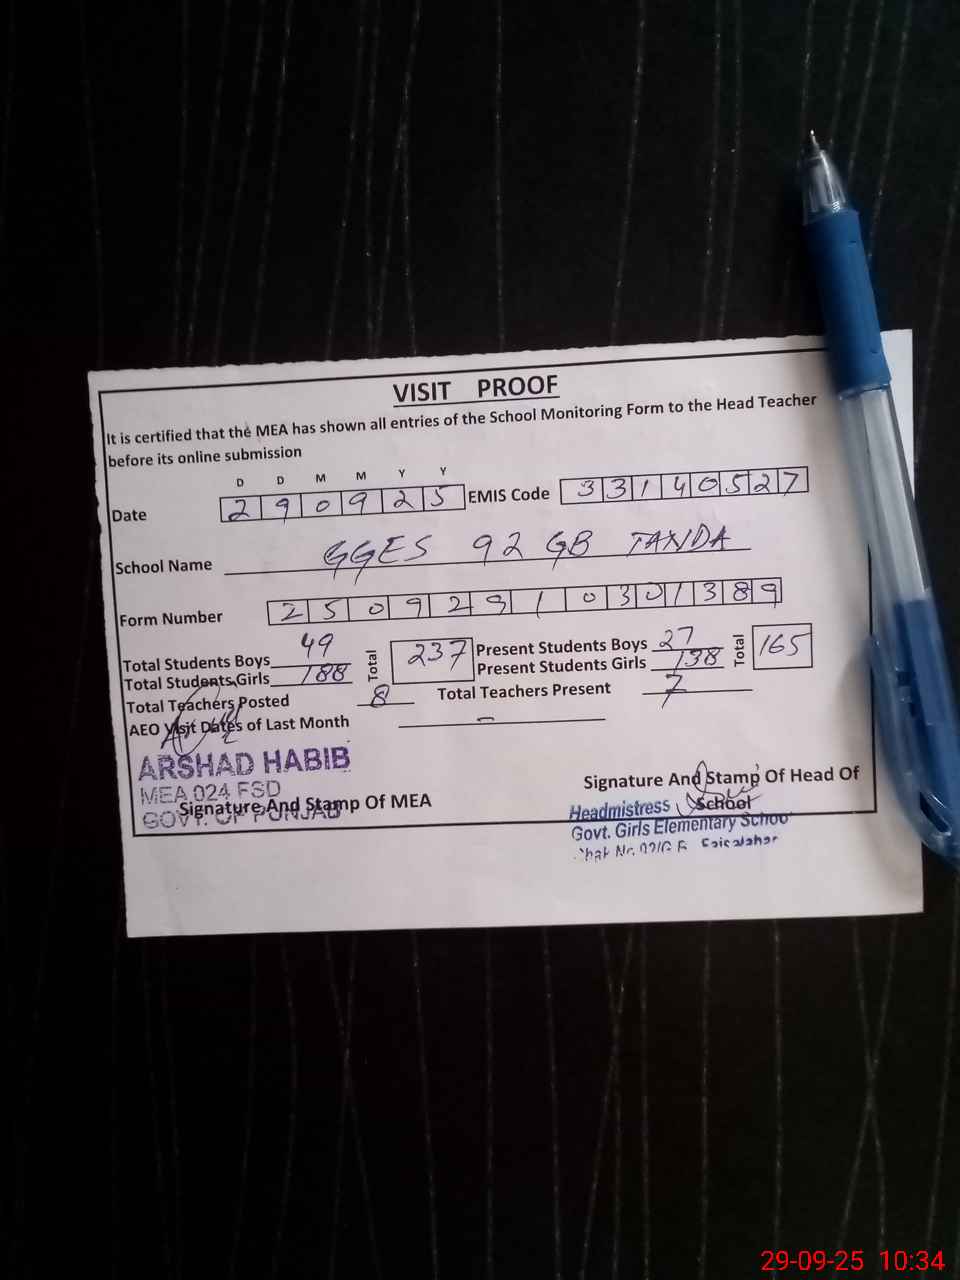 VISIT PROOF
It is certified that the MEA has shown all entries of the School Monitoring Form to the Head Teacher
before its online submission
D D M M Y Y
Date 2 9 0 9 2 5 EMIS Code 3 3 1 4 0 5 2 7
School Name GGES 92 GB TANDA
Form Number 2 5 0 9 2 9 1 0 3 0 1 3 8 9
Total Students Boys 49 Total 237 Present Students Boys 27 Total 165
Total Students Girls 188 Present Students Girls 138
Total Teachers Posted 8 Total Teachers Present 7
AEO Visit Dates of Last Month -
ARSHAD HABIB
MEA 024 FSD
GOVT. OF PUNJAB
Signature And Stamp Of MEA
Signature And Stamp Of Head Of
School
Headmistress
Govt. Girls Elementary School
29-09-25 10:34